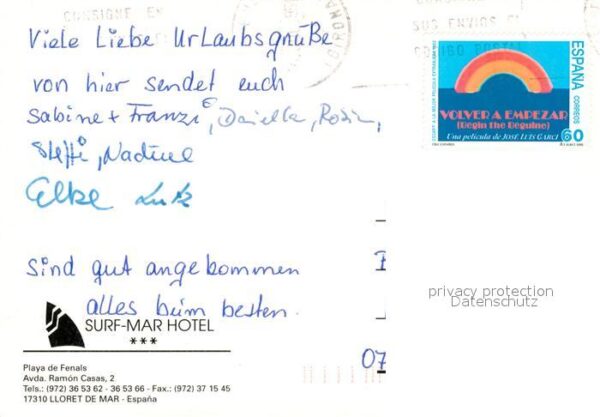 CONSIGNE EN
SUS ENVIOS EL
GIRONA
Viele Liebe Urlaubsgrüße
von hier sendet euch
Sabine + Franzi, Daniella, Robin,
Steffi, Nadine
Elke Lutz
Sind gut angekommen
alles beim besten.
ESPAÑA
CORREOS
VOLVER A EMPEZAR
(Begin the Beguine)
60
Una película de JOSÉ LUIS GARCI
privacy protection
Datenschutz
SURF-MAR HOTEL
***
07
Playa de Fenals
Avda. Ramón Casas, 2
Tels.: (972) 36 53 62 - 36 53 66 - Fax.: (972) 37 15 45
17310 LLORET DE MAR - España